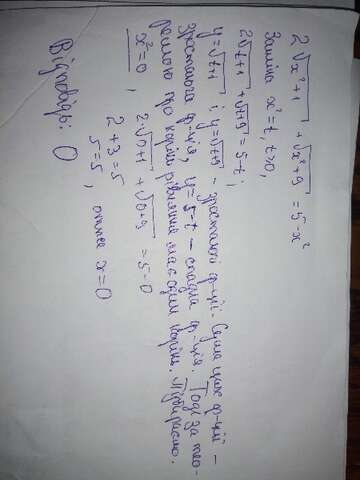 2√(x²+1) + √(x²+9) = 5-x²
Заміна x²=t, t≥0,
2√(t+1) + √(t+9) = 5-t;
y=√(t+1) і y=√(t+9) - зростаючі ф-ції. Сума цих ф-цій -
зростаюча ф-ція, y=5-t - спадна ф-ція. Тоді за тео-
ремою про корінь рівняння має один корінь. Підбираємо.
x²=0, 2·√(0+1) + √(0+9) = 5-0
2+3=5
5=5, отже x=0
Відповідь: 0